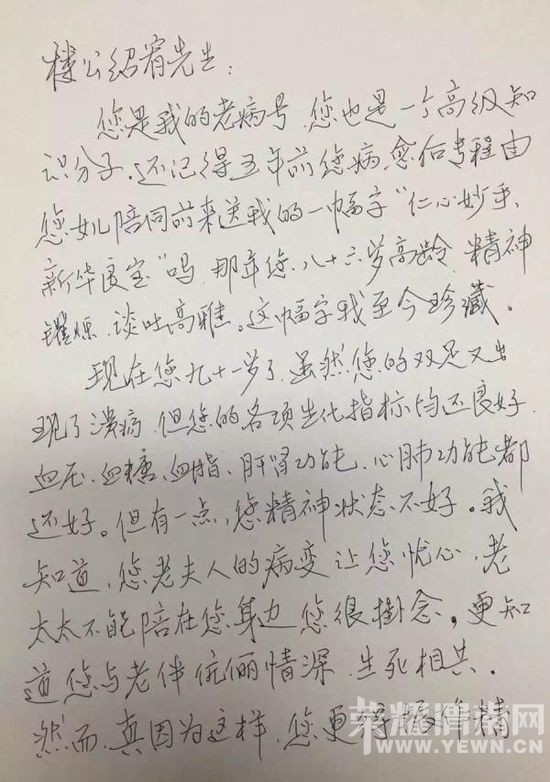 楼公绍宥先生：
您是我的老病号，您也是一个高级知
识分子。还记得五年前您病愈后专程由
您女儿陪同前来送我的一幅字“仁心妙手，
新华医宝”吗，那年您八十六岁高龄，精神
矍烁，谈吐高雅。这幅字我至今珍藏。
现在您九十一岁了，虽然您的双足又出
现了溃疡，但您的各项生化指标均还良好，
血压、血糖、血脂、肝肾功能、心肺功能都
还好。但有一点，您精神状态不好。我
知道，您老夫人的病变让您忧心，老
太太不能陪在您身边您很掛念。更知
道您与老伴伉俪情深，生死相共。
然而，真因为这样，您更得振作精
荣耀渭南网
WWW.YEWN.CN